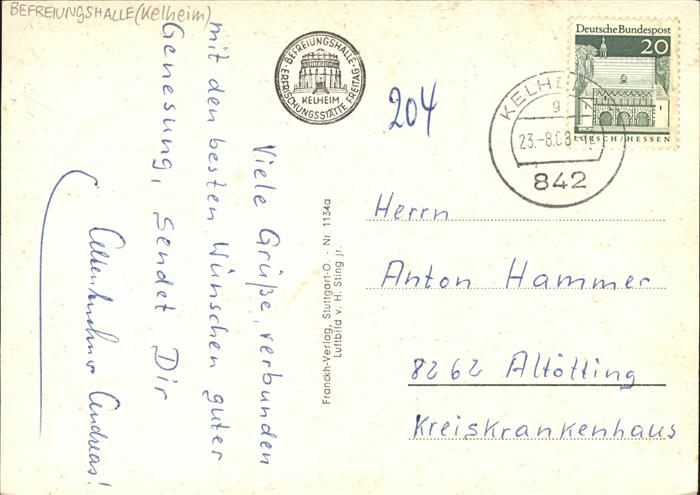 BEFREIUNGSHALLE (Kelheim)
Viele Grüße, verbunden
mit den besten Wünschen guter
Genesung, sendet Dir
Andreas!
· BEFREIUNGSHALLE ·
ERFRISCHUNGSSTÄTTE FREITAG
KELHEIM
204
Franckh-Verlag, Stuttgart-O. · Nr. 1134a
Luftbild v. H. Sting jr.
Deutsche Bundespost
20
LORSCH/HESSEN
KELHEIM
9
23.-8.68
842
Herrn
Anton Hammer
8262 Altötting
Kreiskrankenhaus